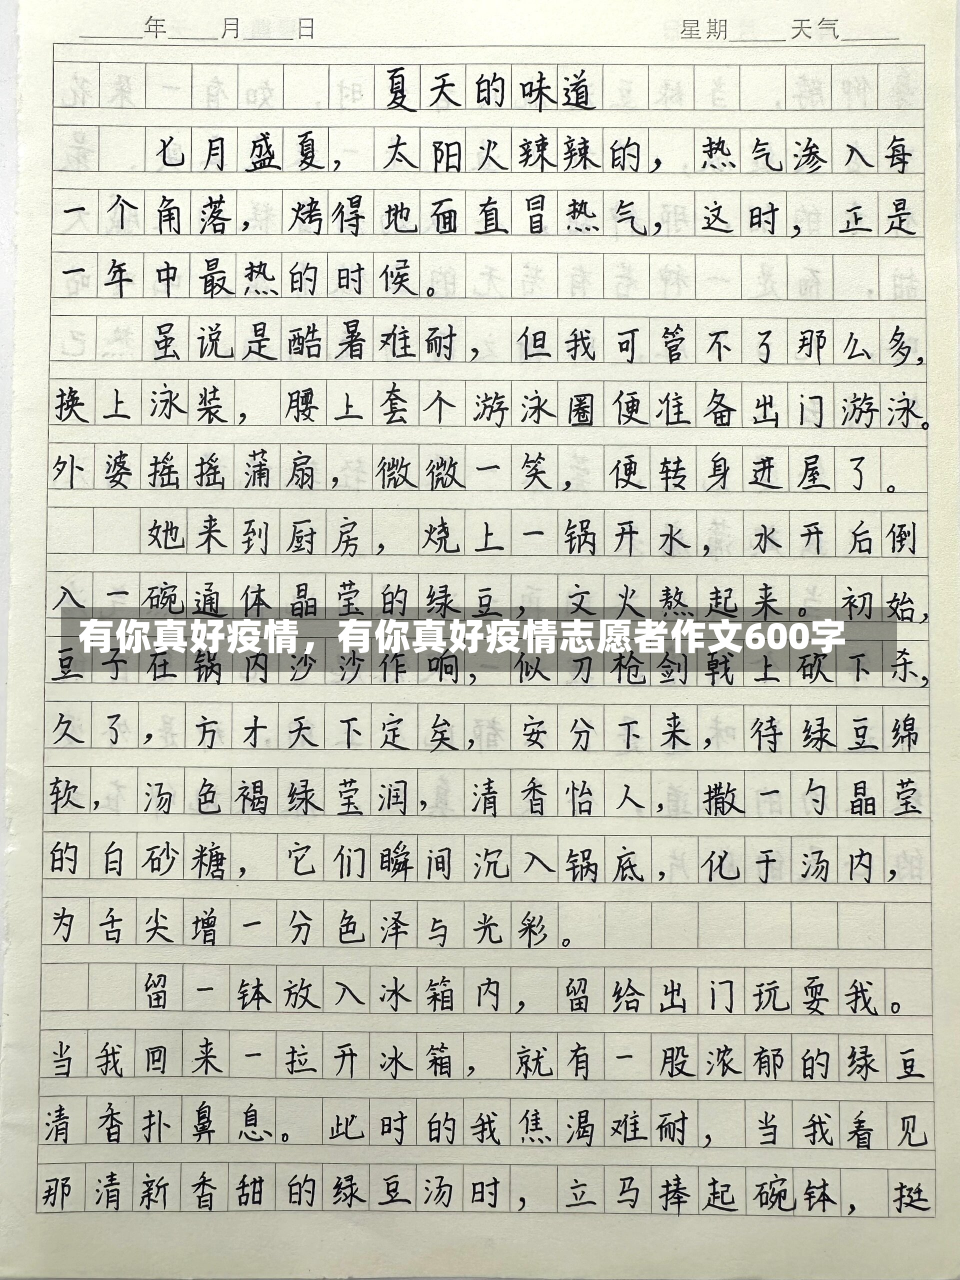 ____年____月____日 星期____天气____
夏天的味道
七月盛夏，太阳火辣辣的，热气渗入每
一个角落，烤得地面直冒热气，这时，正是
一年中最热的时候。
虽说是酷暑难耐，但我可管不了那么多，
换上泳装，腰上套个游泳圈便准备出门游泳。
外婆摇摇蒲扇，微微一笑，便转身进屋了。
她来到厨房，烧上一锅开水，水开后倒
入一碗通体晶莹的绿豆，文火熬起来。初始，
有你真好疫情，有你真好疫情志愿者作文600字
豆子在锅内沙沙作响，似刀枪剑戟上砍下杀，
久了，方才天下定矣，安分下来，待绿豆绵
软，汤色褐绿莹润，清香怡人，撒一勺晶莹
的白砂糖，它们瞬间沉入锅底，化于汤内，
为舌尖增一分色泽与光彩。
留一钵放入冰箱内，留给出门玩耍我。
当我回来一拉开冰箱，就有一股浓郁的绿豆
清香扑鼻息。此时的我焦渴难耐，当我看见
那清新香甜的绿豆汤时，立马捧起碗钵，挺